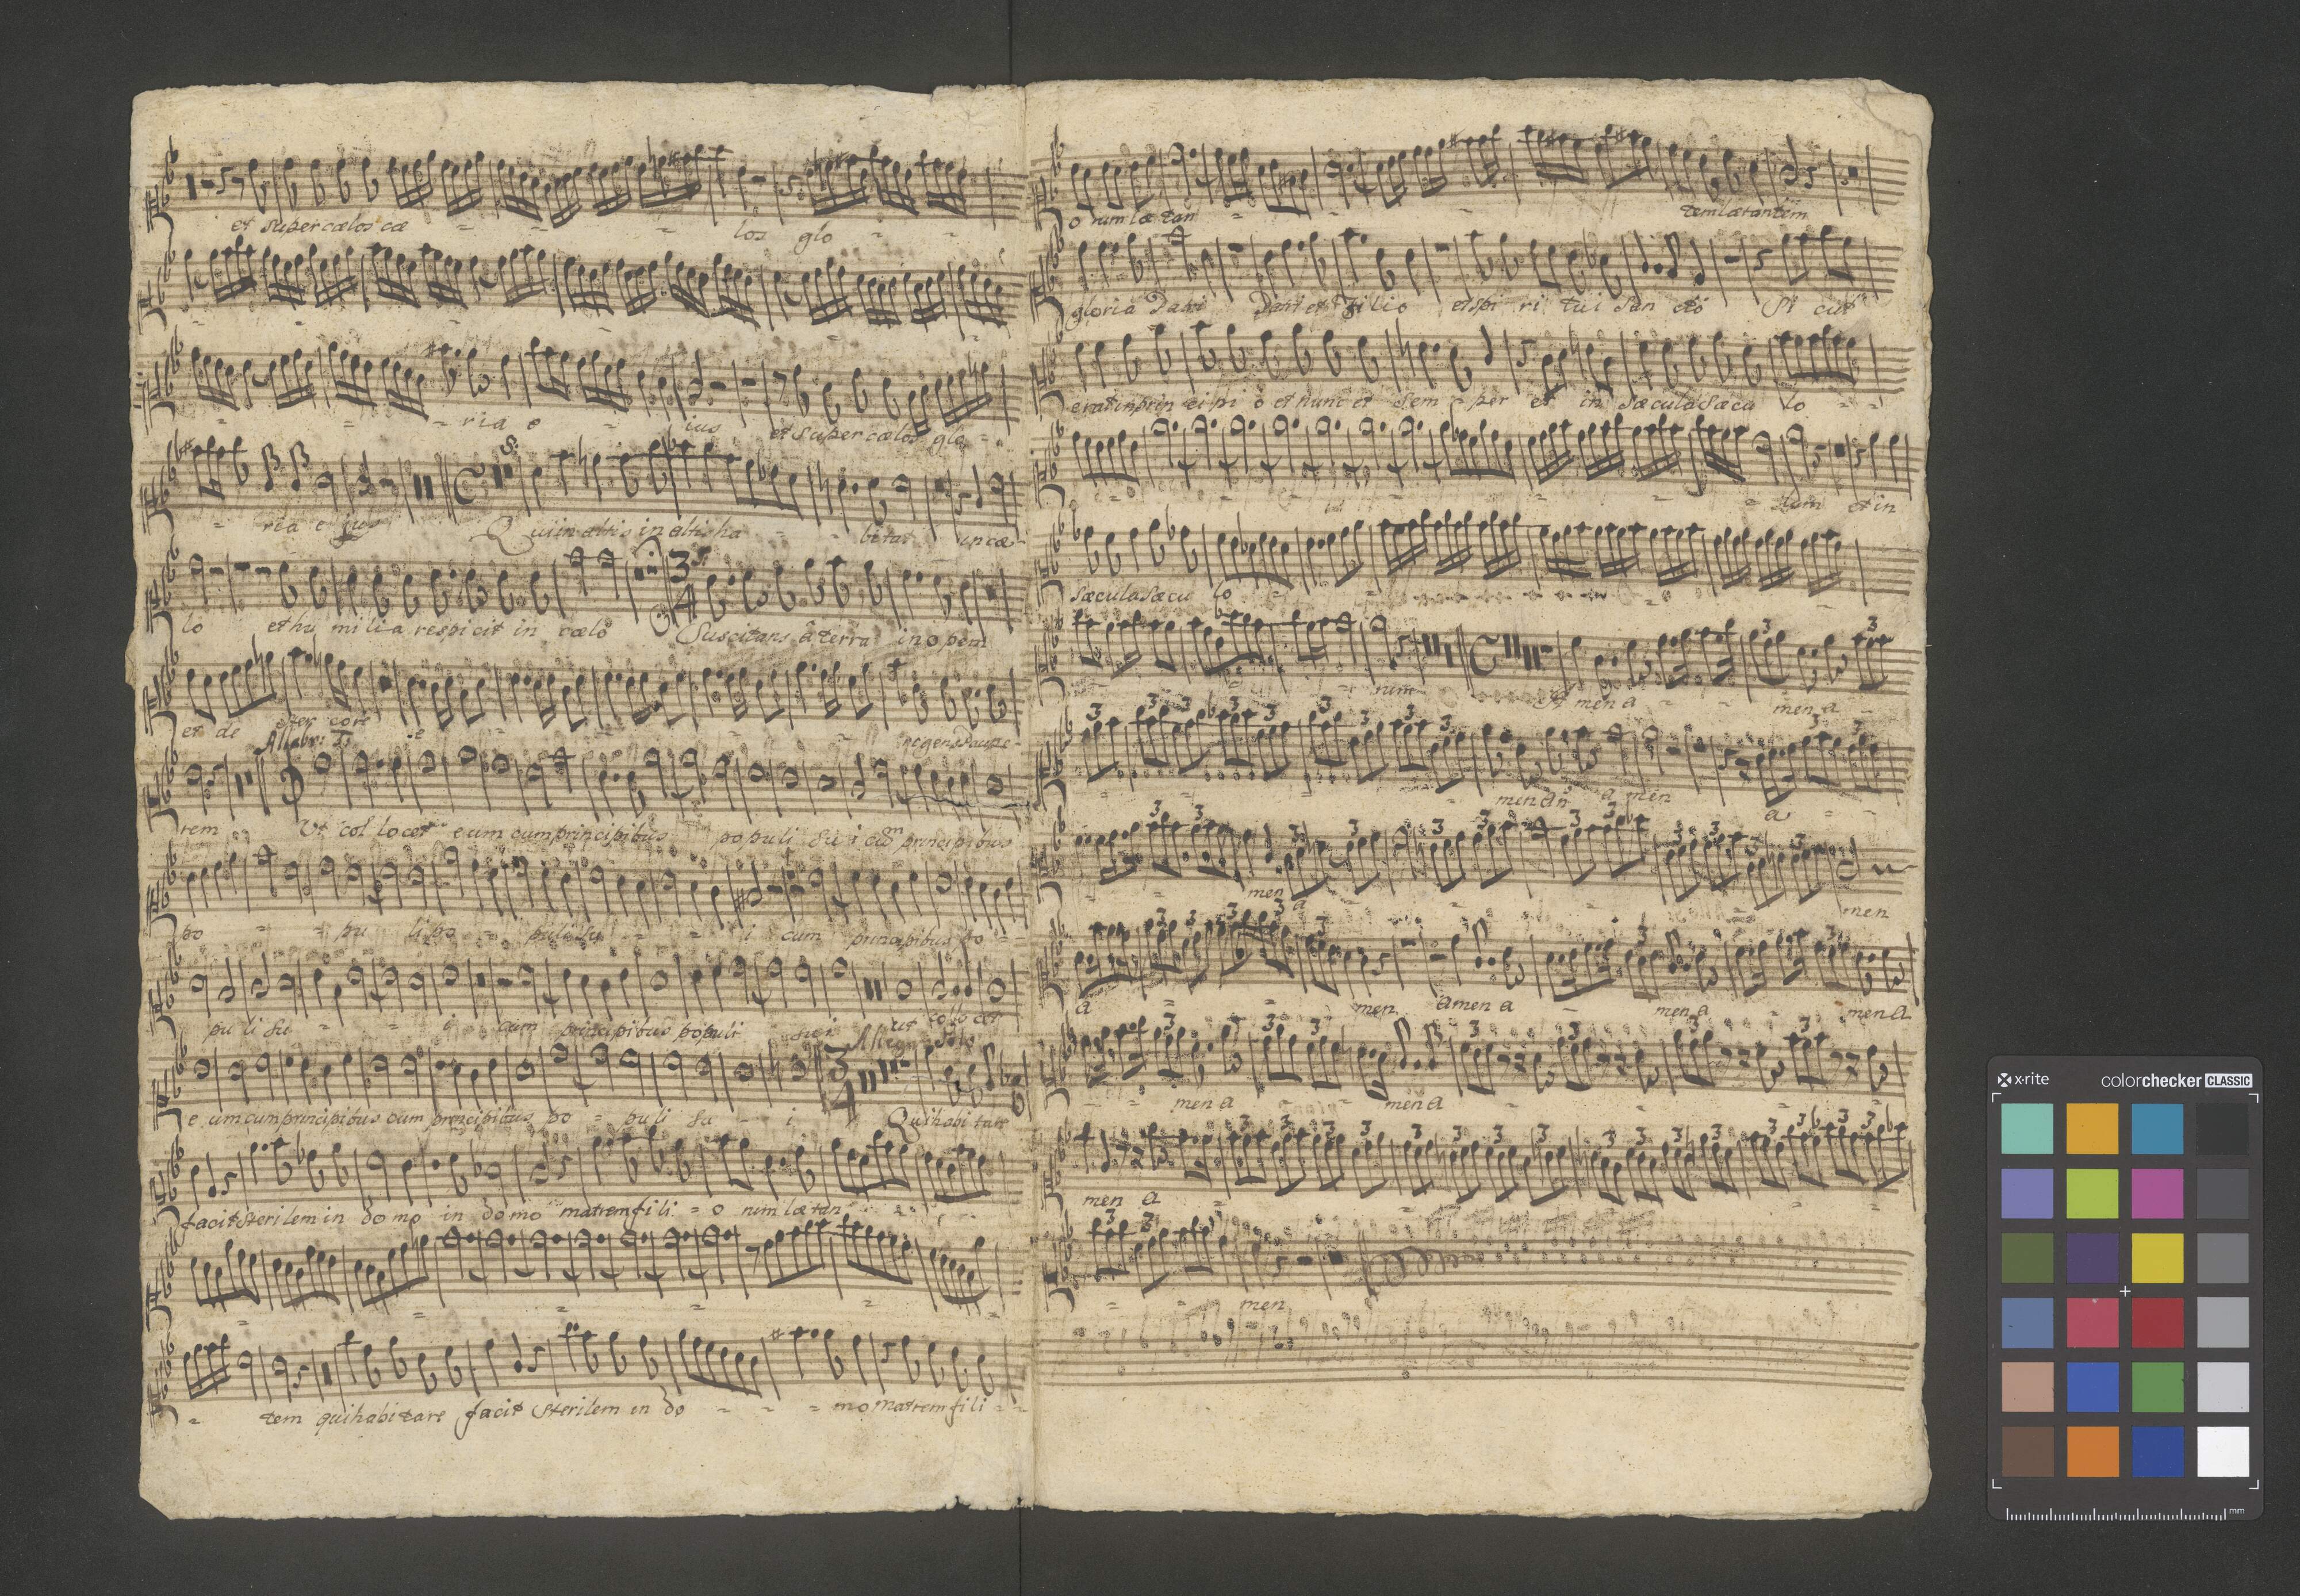 et super cælos cæ - - - los glo - -
- - - - -
- - - ria e - ius et super cælos glo -
- ria e jus Qui in altis in altis ha - - bitat in cæ -
lo et hu milia respicit in cælo Suscitans à terra inopem
et de ster core - e - - - -
Allabr:
rem Ut col locet eum cum principibus populi su i cum principibus
po - - pu li po - puli su - - i cum principibus po -
pu li su - - i cum principibus populi sui ut co lo cet
Allegro Solo
e um cum principibus cum principibus po - puli su - i Qui habi tare
facit sterilem in do mo in do mo matrem fili - o rum læ tan - -
- - - - - -
- tem qui habi tare facit sterilem in do - - - mo matrem fi li - -
o rum læ tan - - - tem lætantem
gloria Patri Patri et filio et spi ri tui San cto Si cut
erat in prin cipi o et nunc et sem - per et in sæcula sæcu lo - -
- - - - - - lum et in
sæcula sæcu lo - - - -
- - - rum A men a - - men a -
3 3
3 3 3 3 3 3 3 3 3 3
- - - men an a men a - -
3 3 3 3 3 3 3 3 3 3
- men a - - - - men
3 3 3 3 3 3 3
a - - men amen a - men a - men a
3 3 3 3 3 3 3
- - men a - - men a - - - -
3 3 3 3 3 3 3 3 3 3 3 3 3
men a - - - -
3 3
- - men